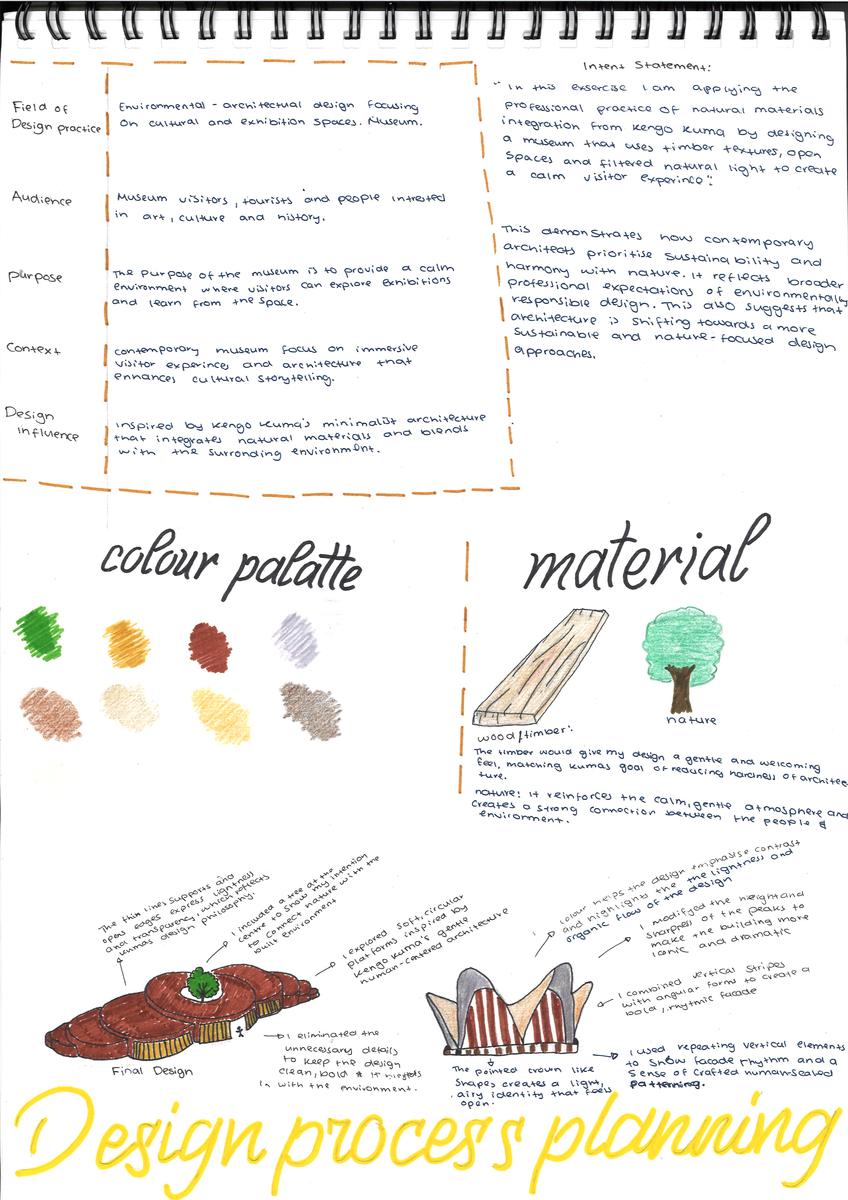 Field of
Design practice
Environmental - architectural design focusing
on cultural and exhibition spaces. Museum.
Audience
Museum visitors, tourists and people intrested
in art, culture and history.
purpose
The purpose of the museum is to provide a calm
environment where visitors can explore exhibitions
and learn from the space.
Context
contemporary museum focus on immersive
visitor experinces and architecture that
enhances cultural storytelling.
Design
Influence
inspired by Kengo Kuma's minimalist architecture
that integrates natural materials and blends
with the surronding environment.
Intent Statement:
"In this exsercise I am applying the
professional practice of natural materials
integration from Kengo Kuma by designing
a museum that uses timber textures, open
spaces and filtered natural light to create
a calm visitor experince".
This demonstrates how contemporary
architects prioritise sustainability and
harmony with nature. It reflects broader
professional expectations of environmentally
responsible design. This also suggests that
architecture is shifting towards a more
sustainable and nature-focused design
approaches.
colour palatte
material
wood/timber:
nature
The timber would give my design a gentle and welcoming
feel, matching Kumas goal of reducing harshness of architec-
ture.
nature: it reinforces the calm, gentle atmosphere and
creates a strong connection between the people &
environment.
The thin lines supports and
open edges express lightness
and transparency, which reflects
Kumas design philosophy.
I included a tree at the
centre to show my intention
to connect nature with the
built environment
I explored soft, circular
platforms inspired by
Kengo Kuma's gentle
human-centered architecture
I eliminated the
unnecessary details
to keep the design
clean, bold & it
in with the environment.
Final Design
colour helps the design emphasise contrast
and highlights the the lightness and
organic flow of the design
I modifyed the height and
sharpness of the peaks to
make the building more
iconic and dramatic
I combined vertical stripes
with angular forms to create a
bold, rhythmic facade
I used repeating vertical elements
to show facade rhythm and a
sense of crafted human-scaled
patterning.
The pointed crown like
shapes creates a light,
airy identity that feels
open.
Design process planning